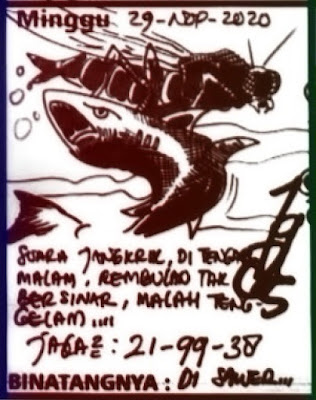 Minggu 29-NOP-2020
SUARA JANGKRIK, DI TENGAH
MALAM, REMBULAN TAK
BERSINAR, MALAH TENG-
GELAM....
JAGA2 : 21-99-38
BINATANGNYA : DI SAWER...